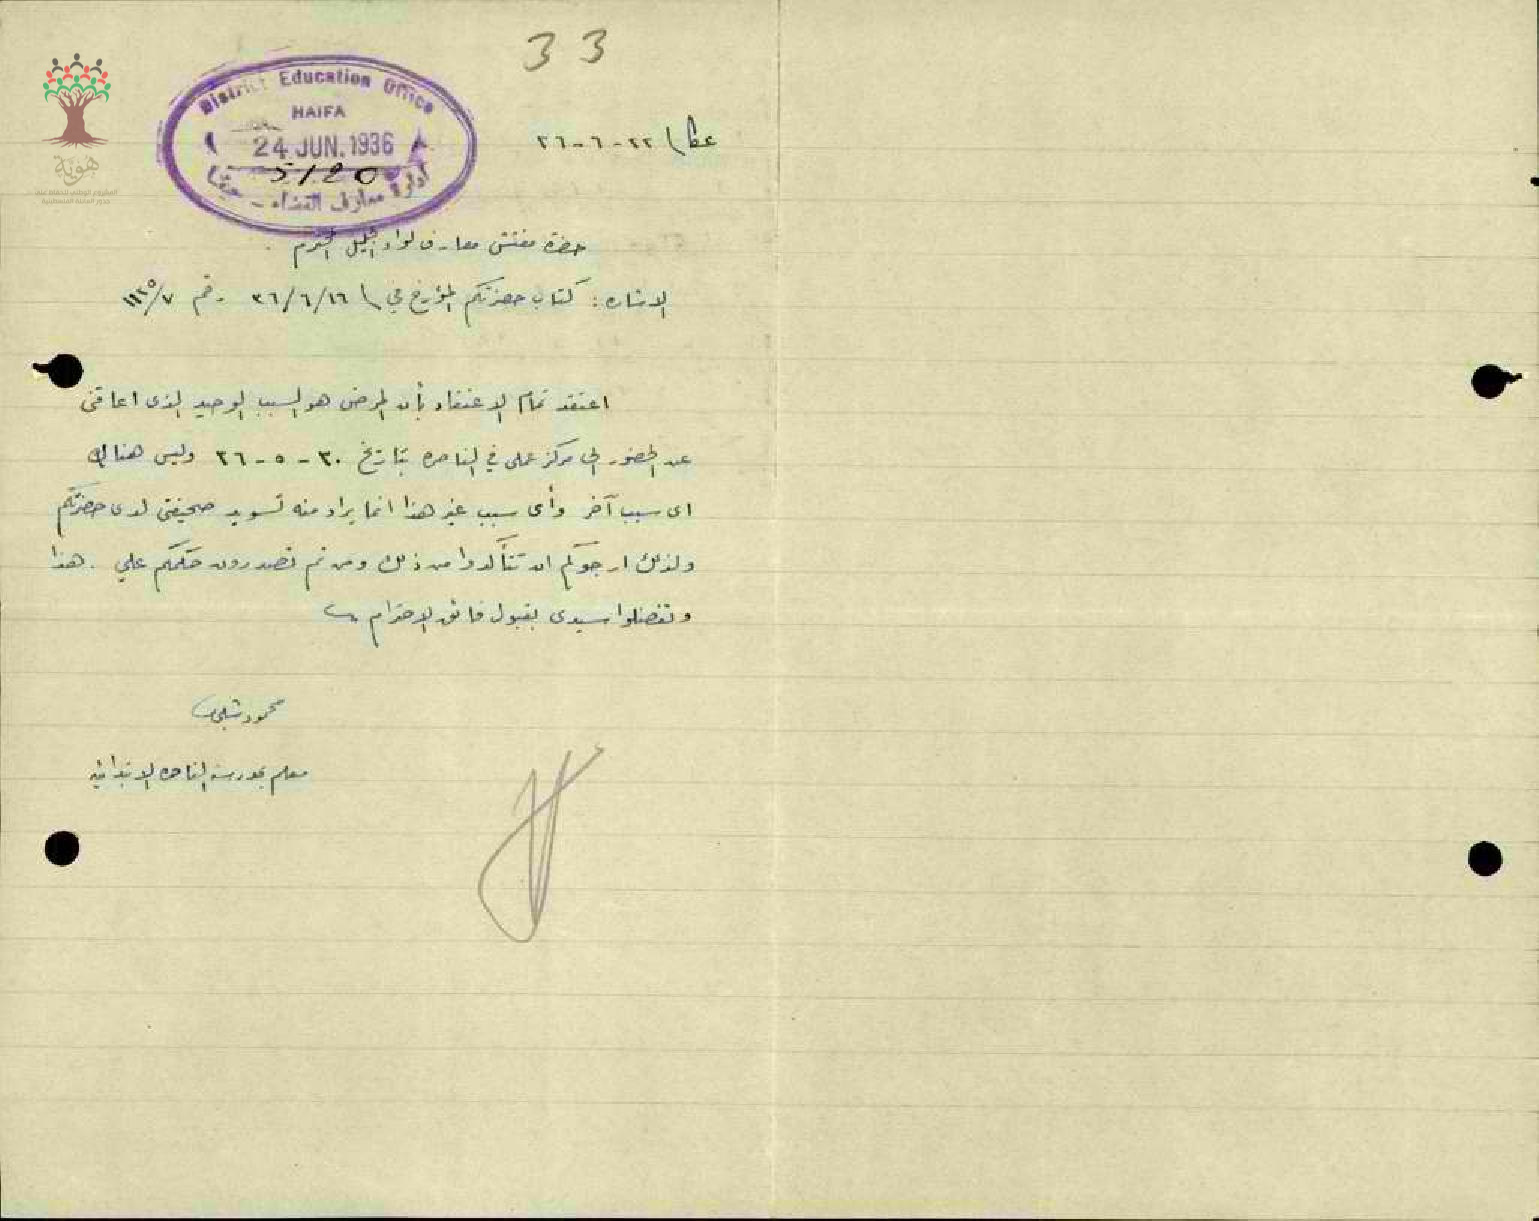 33
District Education Office
HAIFA
24 JUN. 1936
5120
ادارة معارف القضاء - حيفا
هوية
عكا ٢٢-٦-٣٦
حضرة مفتش معارف لواء الجليل المحترم .
الاشارة : كتاب حضرتكم المؤرخ في ١٦/٦/٣٦ رقم ٧/١١٢٥
اعتقد تمام الاعتقاد بأن المرض هو السبب الوحيد الذى اعاقنى
عن الحضور الى مركز عملى في الناصره بتاريخ ٣٠-٥-٣٦ وليس هناك
اى سبب آخر وأى سبب غير هذا انما يراد منه تسويد صحيفتى لدى حضرتكم
ولذلك ارجوكم ان تتأكدوا من ذلك ومن ثم تصدرون حكمكم علي . هذا
وتفضلوا سيدى بقبول فائق الاحترام
محمود
معلم بمدرسة الناصره الابتدائيه